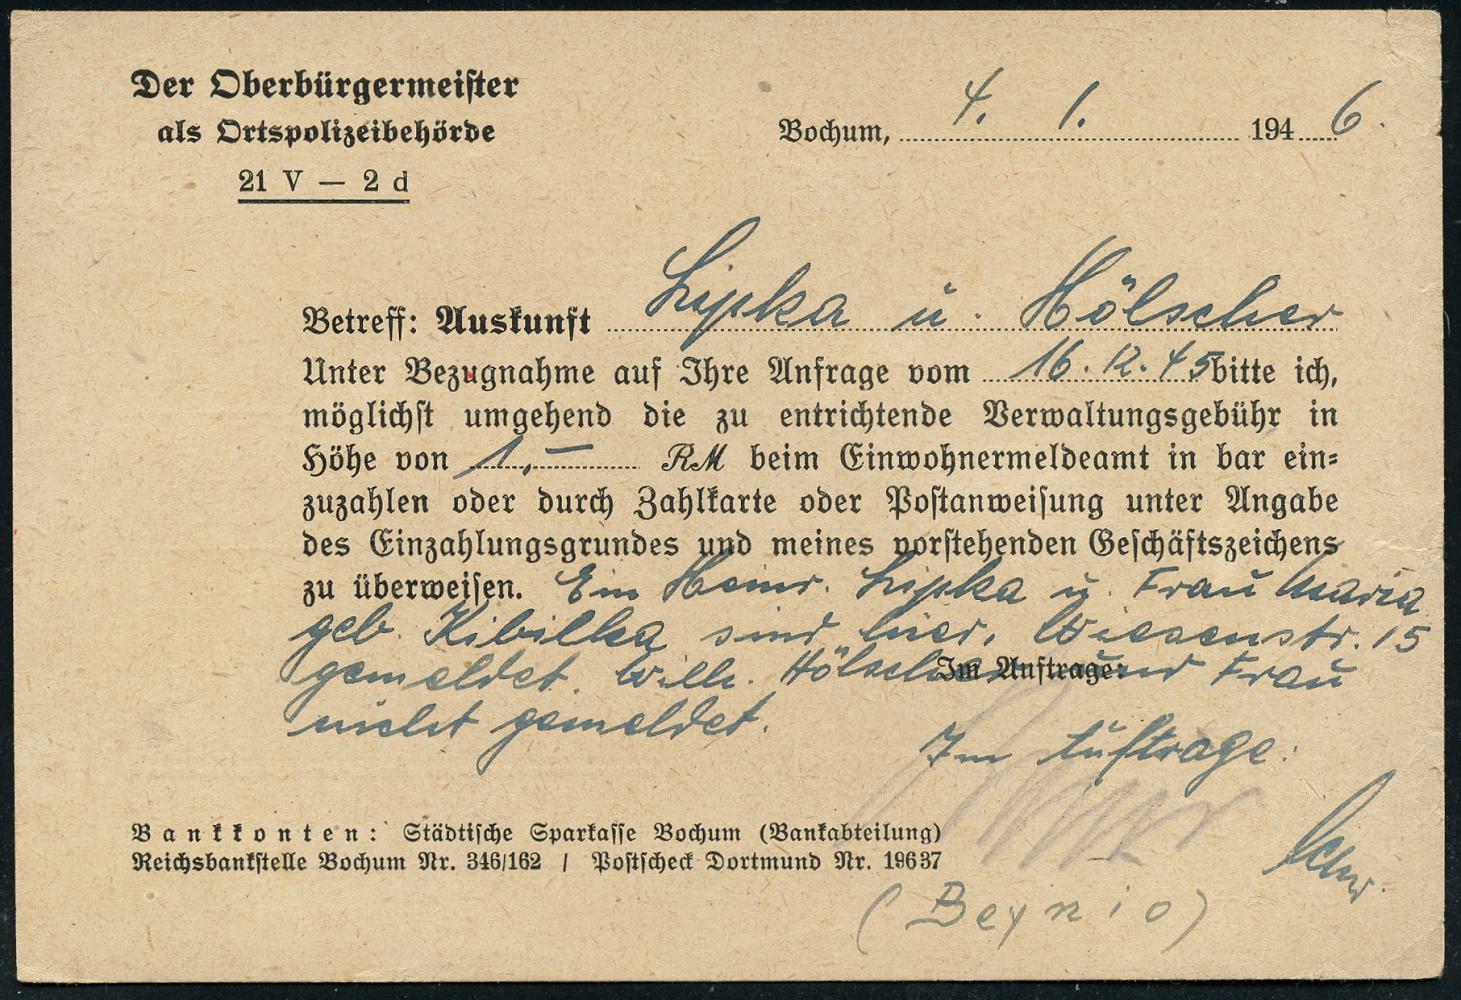 Der Oberbürgermeister
als Ortspolizeibehörde
21 V — 2 d
Bochum, 4. 1. 1946.
Betreff: Auskunft Lipka u. Hölscher
Unter Bezugnahme auf Ihre Anfrage vom 16.12.45 bitte ich,
möglichst umgehend die zu entrichtende Verwaltungsgebühr in
Höhe von 1,– RM beim Einwohnermeldeamt in bar ein-
zuzahlen oder durch Zahlkarte oder Postanweisung unter Angabe
des Einzahlungsgrundes und meines vorstehenden Geschäftszeichens
zu überweisen. Ein Heinr. Lipka u. Frau Maria
geb. Kibilka sind hier, Wiesenstr. 15
gemeldet. Wilh. Hölscher und Frau
Im Auftrage:
nicht gemeldet.
Im Auftrage:
Bankkonten: Städtische Sparkasse Bochum (Bankabteilung)
Reichsbankstelle Bochum Nr. 346/162 / Postscheck Dortmund Nr. 19637
(Beynio)